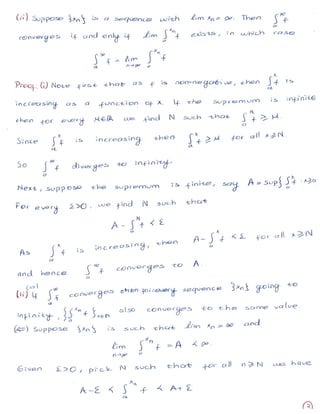 (ii) Suppose {xn} is a sequence with lim xn = ∞. Then ∫_a^∞ f
converges if and only if lim ∫_a^{xn} f exists, in which case
∫_a^∞ f = lim_{n→∞} ∫_a^{xn} f
Proof. (i) Note first that as f is non-negative, then ∫_a^x f is
increasing as a function of x. If the supremum is infinite
then for every M∈ℝ we find N such that ∫_a^N f ≥ M.
Since ∫_a^x f is increasing then ∫_a^x f ≥ M for all x≥N
So ∫_a^∞ f diverges to infinity.
Next, suppose the supremum is finite, say A = sup{∫_a^x f : x≥a
For every ε>0, we find N such that
A - ∫_a^N f < ε
As ∫_a^x f is increasing, then A - ∫_a^x f < ε for all x≥N
and hence ∫_a^∞ f converges to A.
(ii) If ∫_a^∞ f converges then every sequence {xn} going to
infinity, {∫_a^{xn} f} also converges to the same value
(⇐) Suppose {xn} is such that lim xn = ∞ and
lim_{n→∞} ∫_a^{xn} f = A < ∞.
Given ε>0, pick N such that for all n≥N we have
A-ε < ∫_a^{xn} f < A+ε